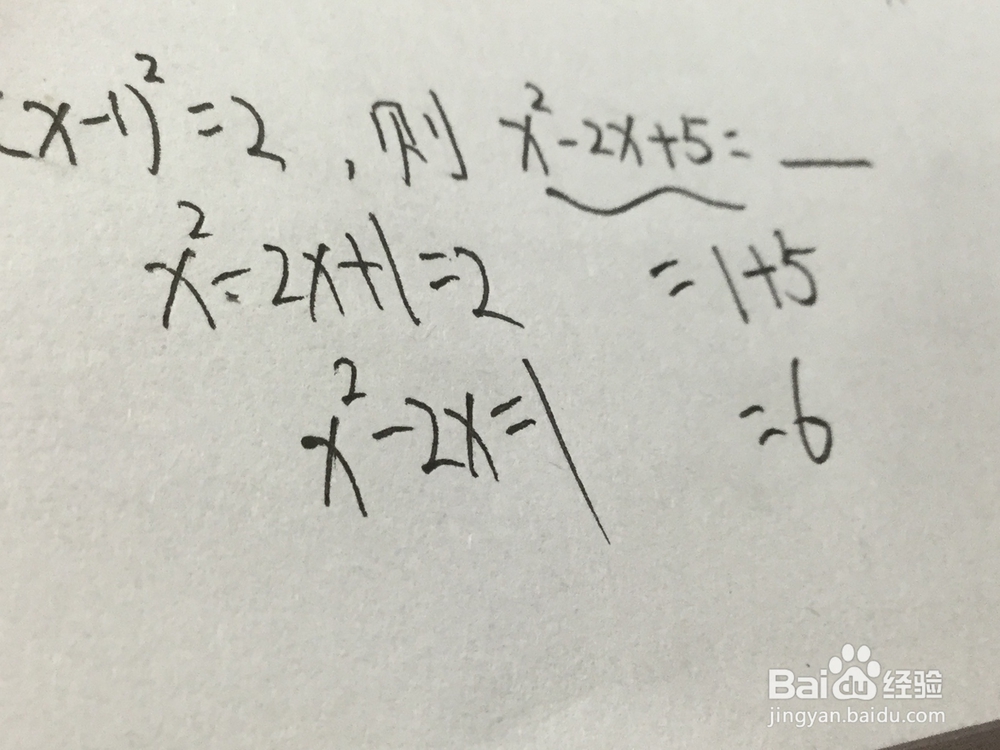 (x-1)²=2,则 x²-2x+5=__
x²-2x+1=2 =1+5
x²-2x=1 =6
Baidu经验
jingyan.baidu.com